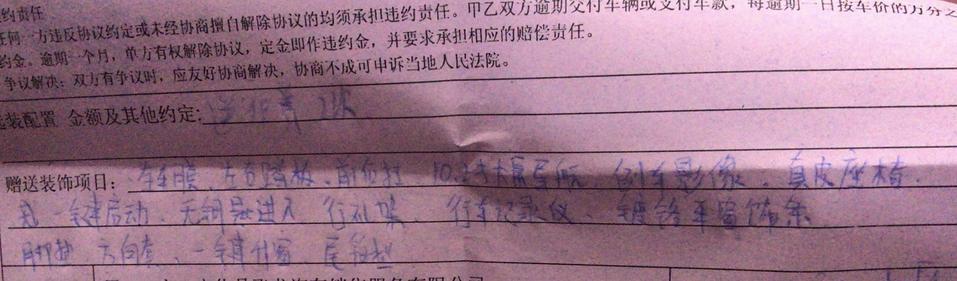 约责任
任何一方违反协议约定或未经协商擅自解除协议的均须承担违约责任。甲乙双方逾期交付车辆或支付车款，每逾期一日按车价的万分之
约金。逾期一个月，单方有权解除协议，定金即作违约金，并要求承担相应的赔偿责任。
争议解决：双方有争议时，应友好协商解决，协商不成可申诉当地人民法院。
选装配置 金额及其他约定：送保养2次
赠送装饰项目：车膜、左右踏板、前包杠 10.2寸大屏导航、倒车影像、真皮座椅、
一键启动、无钥匙进入 行礼架、行车记录仪、镀铬车窗饰条
脚垫 方向套、一键升窗、尾